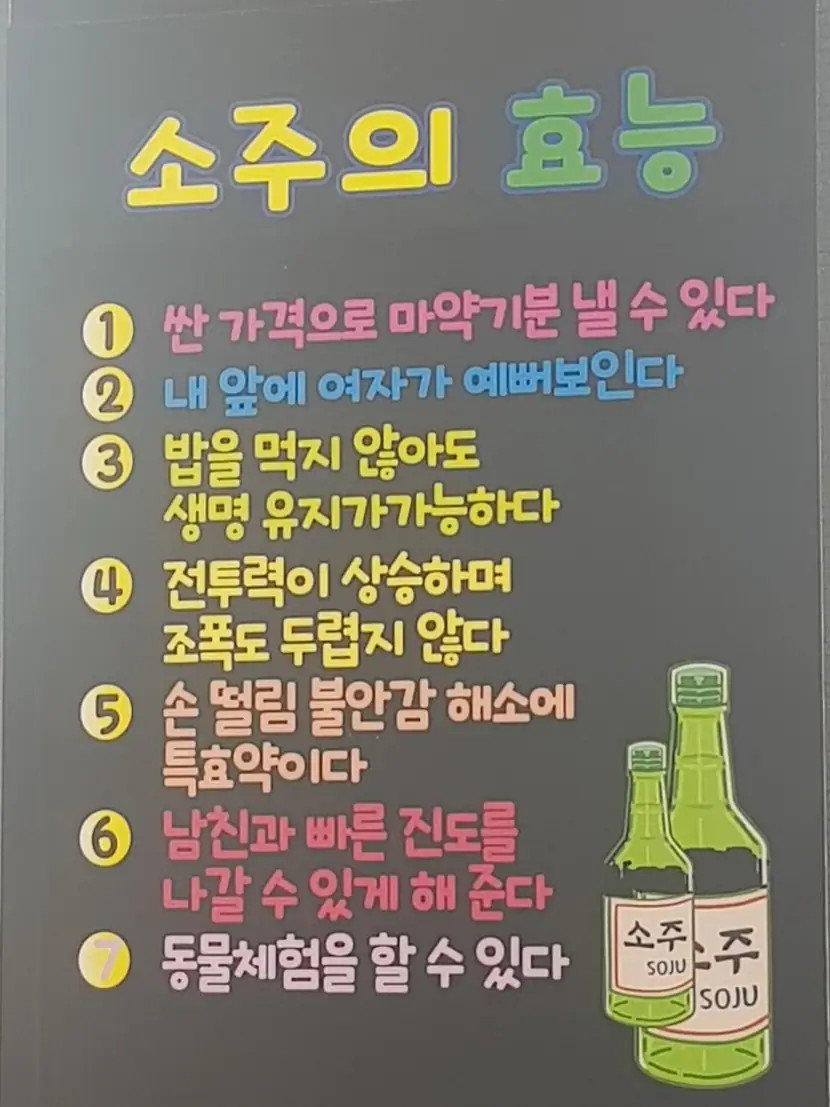 소주의 효능
1 싼 가격으로 마약기분 낼 수 있다
2 내 앞에 여자가 예뻐보인다
3 밥을 먹지 않아도
생명 유지가가능하다
4 전투력이 상승하며
조폭도 두렵지 않다
5 손 떨림 불안감 해소에
특효약이다
6 남친과 빠른 진도를
나갈 수 있게 해 준다
7 동물체험을 할 수 있다
소주
SOJU
소주
SOJU